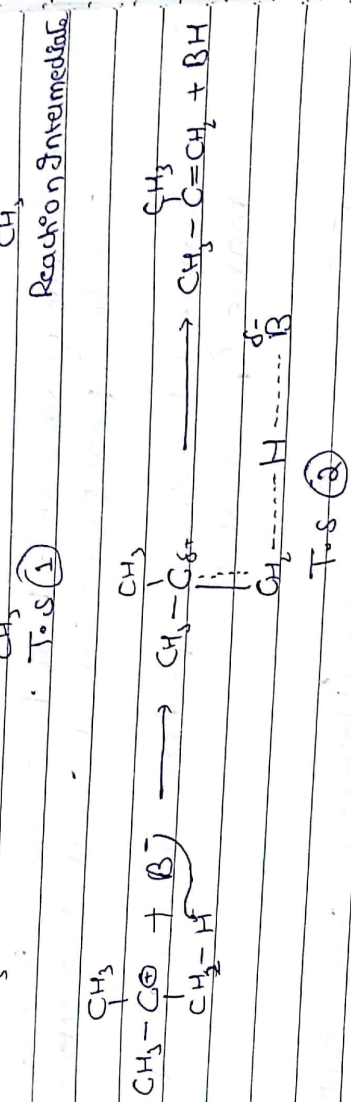 CH₃ CH₃
T.S ① Reaction Intermediate
CH₃ CH₃ CH₃
CH₃-C⊕ + B⁻ ⟶ CH₃-Cδ+ ⟶ CH₃-C=CH₂ + BH
CH₂-H CH₂------H------Bδ-
T.S ②